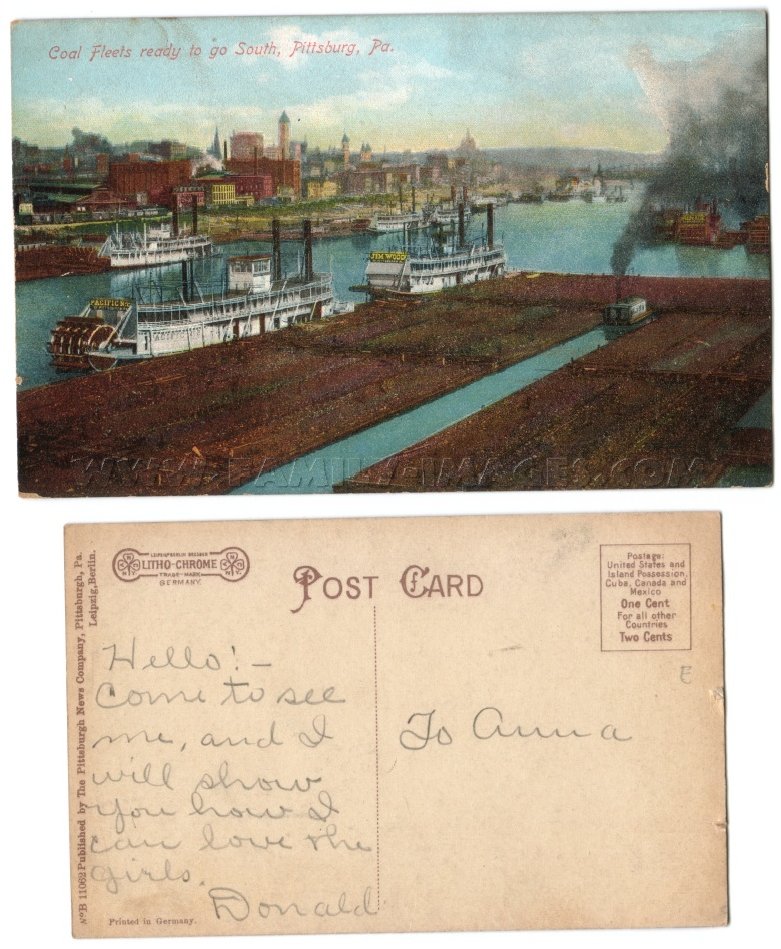 Coal Fleets ready to go South, Pittsburg, Pa.
PACIFIC No.
JIM WOOD
WWW.FAMILY-IMAGES.COM
No B 11062 Published by The Pittsburgh News Company, Pittsburgh, Pa.
Leipzig, Berlin.
LEIPZIG BERLIN DRESDEN
LITHO-CHROME
TRADE-MARK
GERMANY.
POST CARD
Postage:
United States and
Island Possession,
Cuba, Canada and
Mexico
One Cent
For all other
Countries
Two Cents
E
Hello! -
Come to see
me, and I
will show
you how I
can love the
girls.
Donald
To Anna
Printed in Germany.